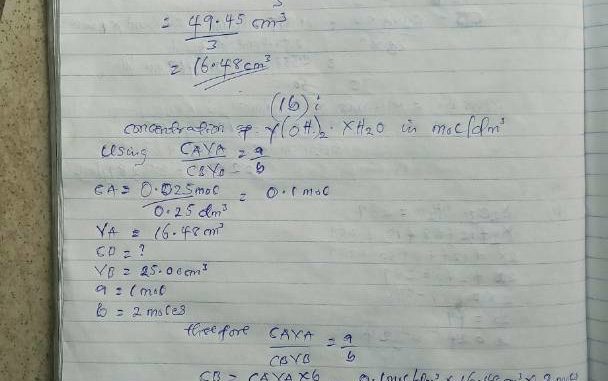 3
= 49.45 cm³
3
= 16.48cm³
(1b) i
concentration of Y(OH)₂ · XH₂O in mol/dm³
Using CAVA/CBVB = a/b
CA = 0.025mol / 0.25 dm³ = 0.1mol
VA = 16.48 cm³
CB = ?
VB = 25.00cm³
a = 1 mol
b = 2 moles
therefore CAVA/CBVB = a/b
CB = CAVA × b